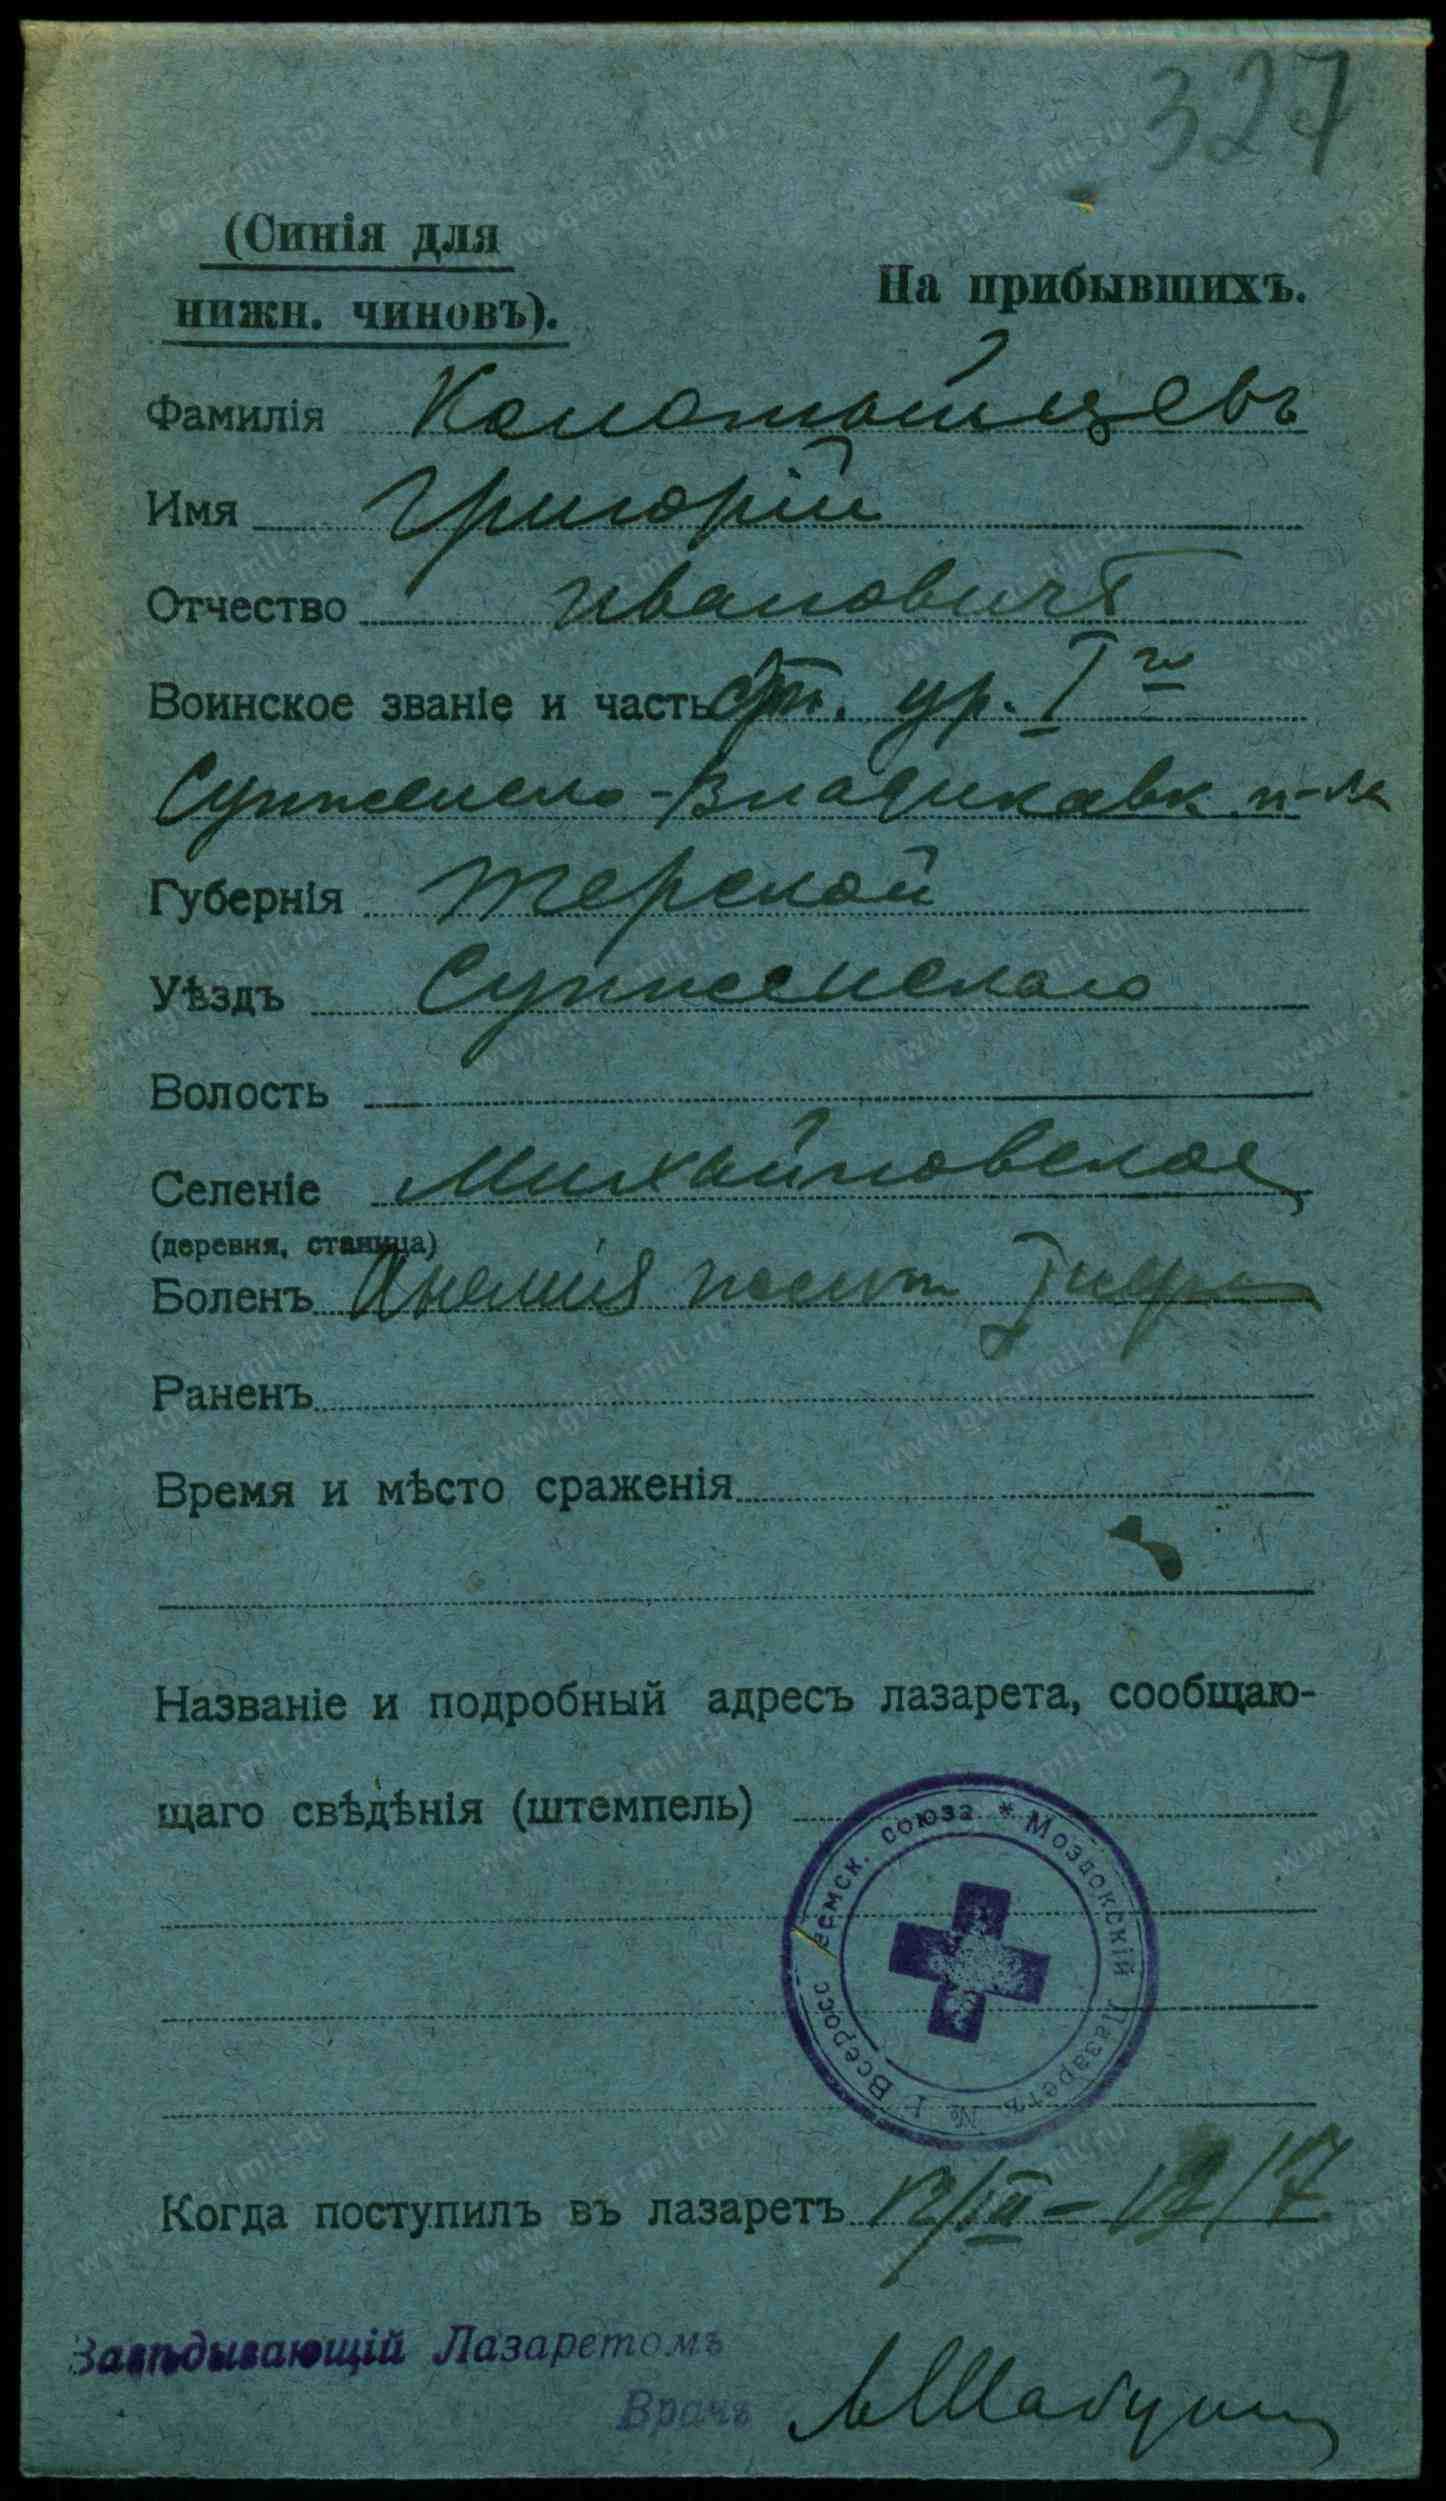 327
(Синія для
нижн. чиновъ).
На прибывшихъ.
Фамилія
Имя Григорій
Отчество Ивановичъ
Воинское званіе и часть ст. ур. I го
Сунженско-Владикавк. п-ка
Губернія Терской
Уѣздъ Сунженскаго
Волость
Селеніе Михайловское
(деревня, станица)
Боленъ Анемія
Раненъ
Время и мѣсто сраженія
Названіе и подробный адресъ лазарета, сообщаю-
щаго свѣдѣнія (штемпель)
Всеросс земск. союза * Моздокскій Лазаретъ № 1
Когда поступилъ въ лазаретъ
Завѣдывающій Лазаретомъ
Врачъ
www.gwar.mil.ru